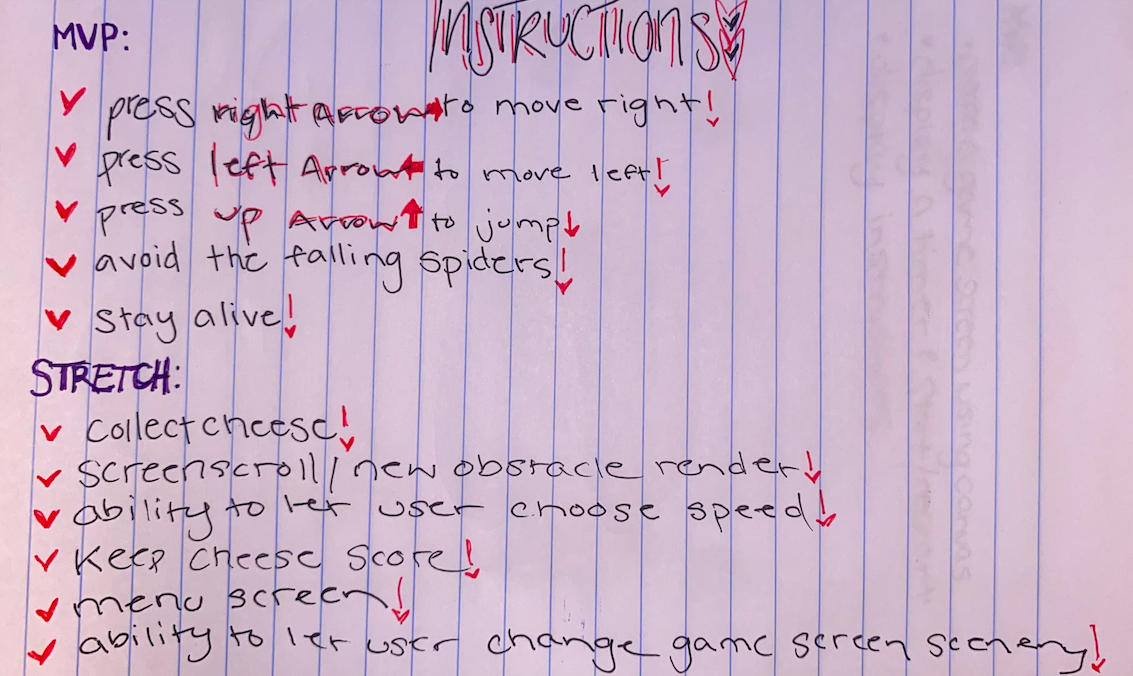 INSTRUCTIONS
MVP:
press right Arrow → to move right!
press left Arrow ← to move left!
press up Arrow ↑ to jump!
avoid the falling spiders!
stay alive!
STRETCH:
collect cheese!
screenscroll/new obstacle render!
ability to let user choose speed!
Keep cheese score!
menu screen!
ability to let user change game screen scenery!